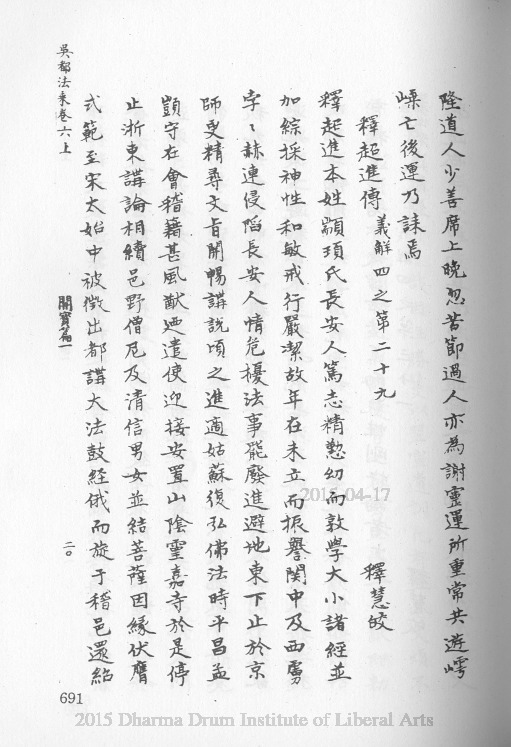 隆道人少善席上晚忽苦節過人亦為謝靈運所重常共遊嶀
嵊亡後運乃誄焉
釋超進傳 義解四之第二十九 釋慧皎
釋超進本姓顓頊氏長安人篤志精懃幼而敦學大小諸經並
加綜採神性和敏戒行嚴潔故年在未立而振譽關中及西虜
孛〻赫連侵陷長安人情危擾法事罷廢進避地東下止於京
師更精尋文旨開暢講說頃之進適姑蘇復弘佛法時平昌孟
顗守在會稽藉甚風猷迺遣使迎接安置山陰靈嘉寺於是停
止浙東講論相續邑野僧尼及清信男女並結菩薩因緣伏膺
式範至宋太始中被徵出都講大法鼓經俄而旋于稽邑還紹
吳都法乘卷六上 開寶篇一 二〇
691
2015-04-17
2015 Dharma Drum Institute of Liberal Arts